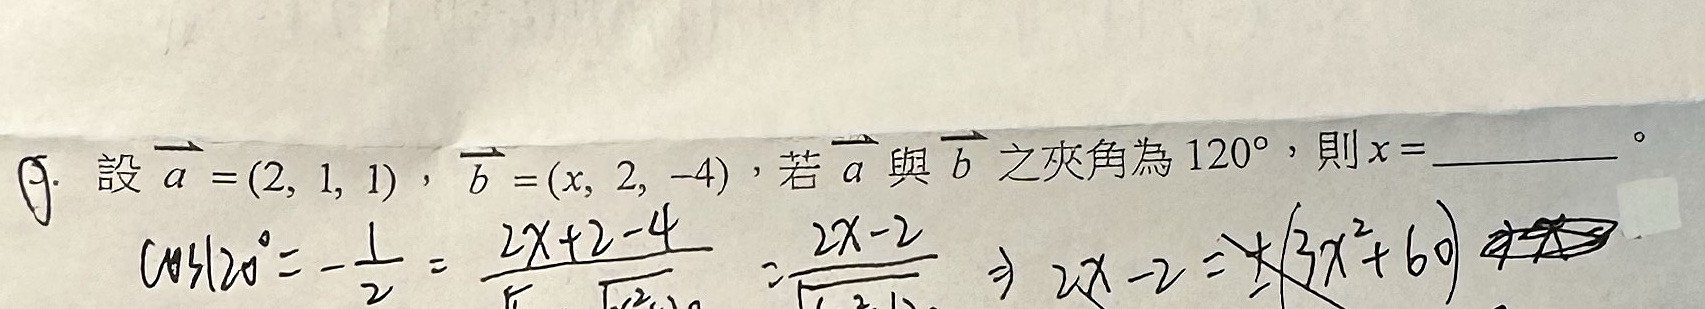 設 a = (2, 1, 1)，b = (x, 2, −4)，若 a 與 b 之夾角為 120°，則 x = ________。
cos120° = -1/2 = 2x+2-4 / = 2x-2 / ⇒ 2x-2 = (3x²+60)